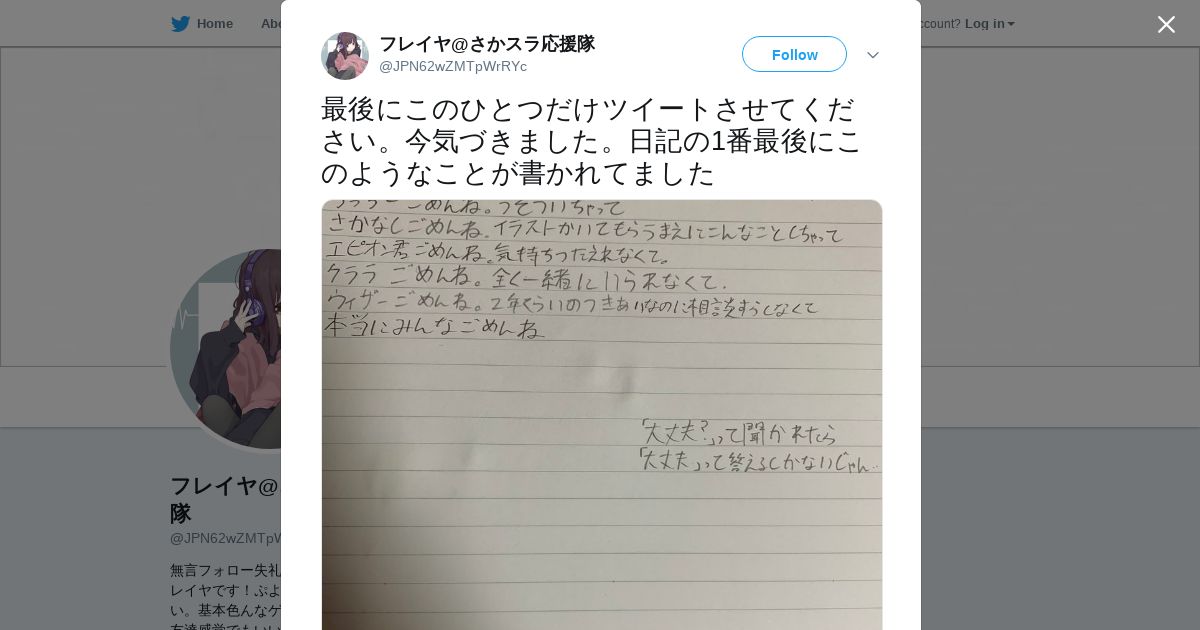 Home
Abo
ccount? Log in
フレイヤ@さかスラ応援隊
@JPN62wZMTpWrRYc
Follow
最後にこのひとつだけツイートさせてくだ
さい。今気づきました。日記の1番最後にこ
のようなことが書かれてました
ごめんね。うそついちゃって
さかなしごめんね。イラストかいてもらうまえにこんなことしちゃって
エピオン君ごめんね。気持ちつたえれなくて。
クララ ごめんね。全く一緒にいられなくて.
ウィザーごめんね。2年くらいのつきあいなのに相談すらしなくて
本当にみんなごめんね
「大丈夫?」って聞かれたら
「大丈夫」って答えるしかないじゃん..
フレイヤ@
隊
@JPN62wZMTpW
無言フォロー失礼
レイヤです！ぷよ
い。基本色んなゲ
友達感覚でもいい